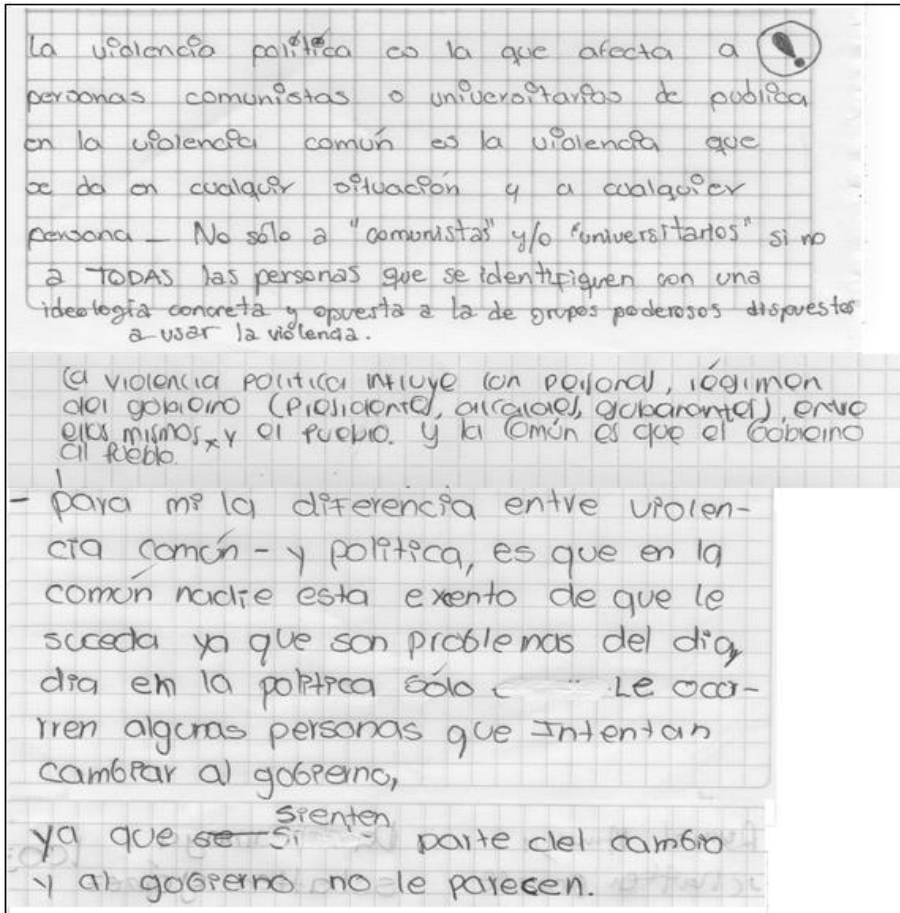 La violencia política es la que afecta a
personas comunistas o universitarias de publica
en la violencia común es la violencia que
se da en cualquir situación y a cualquier
persona — No sólo a "comunistas" y/o "universitarios" si no
a TODAS las personas que se identifiquen con una
ideología concreta y opuesta a la de grupos poderosos dispuestos
a usar la violencia.
La violencia politica influye con personal, régimen
del gobierno (presidente, alcaldes, gobernantes), entre
ellos mismos, y el pueblo. y la común es que el Gobierno
al pueblo.
- para mi la diferencia entre violen-
cia común - y politica, es que en la
común nadie esta exento de que le
suceda ya que son problemas del dia,
dia en la politica sólo Le ocu-
rren algunas personas que Intentan
cambiar al gobierno,
sienten
ya que se si parte del cambio
y al gobierno no le parecen.